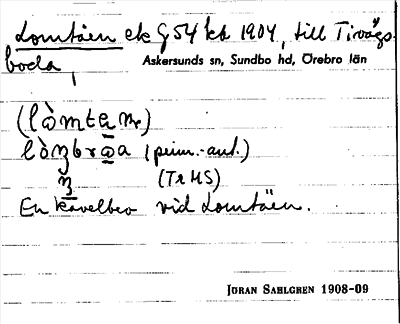 Lomtäen ek G 54 kb 1904, till Tivägs-
boda,
Askersunds sn, Sundbo hd, Örebro län
(prim.-ant.)
(Tr HS)
En kavelbro vid Lomtäen.
JÖRAN SAHLGREN 1908-09